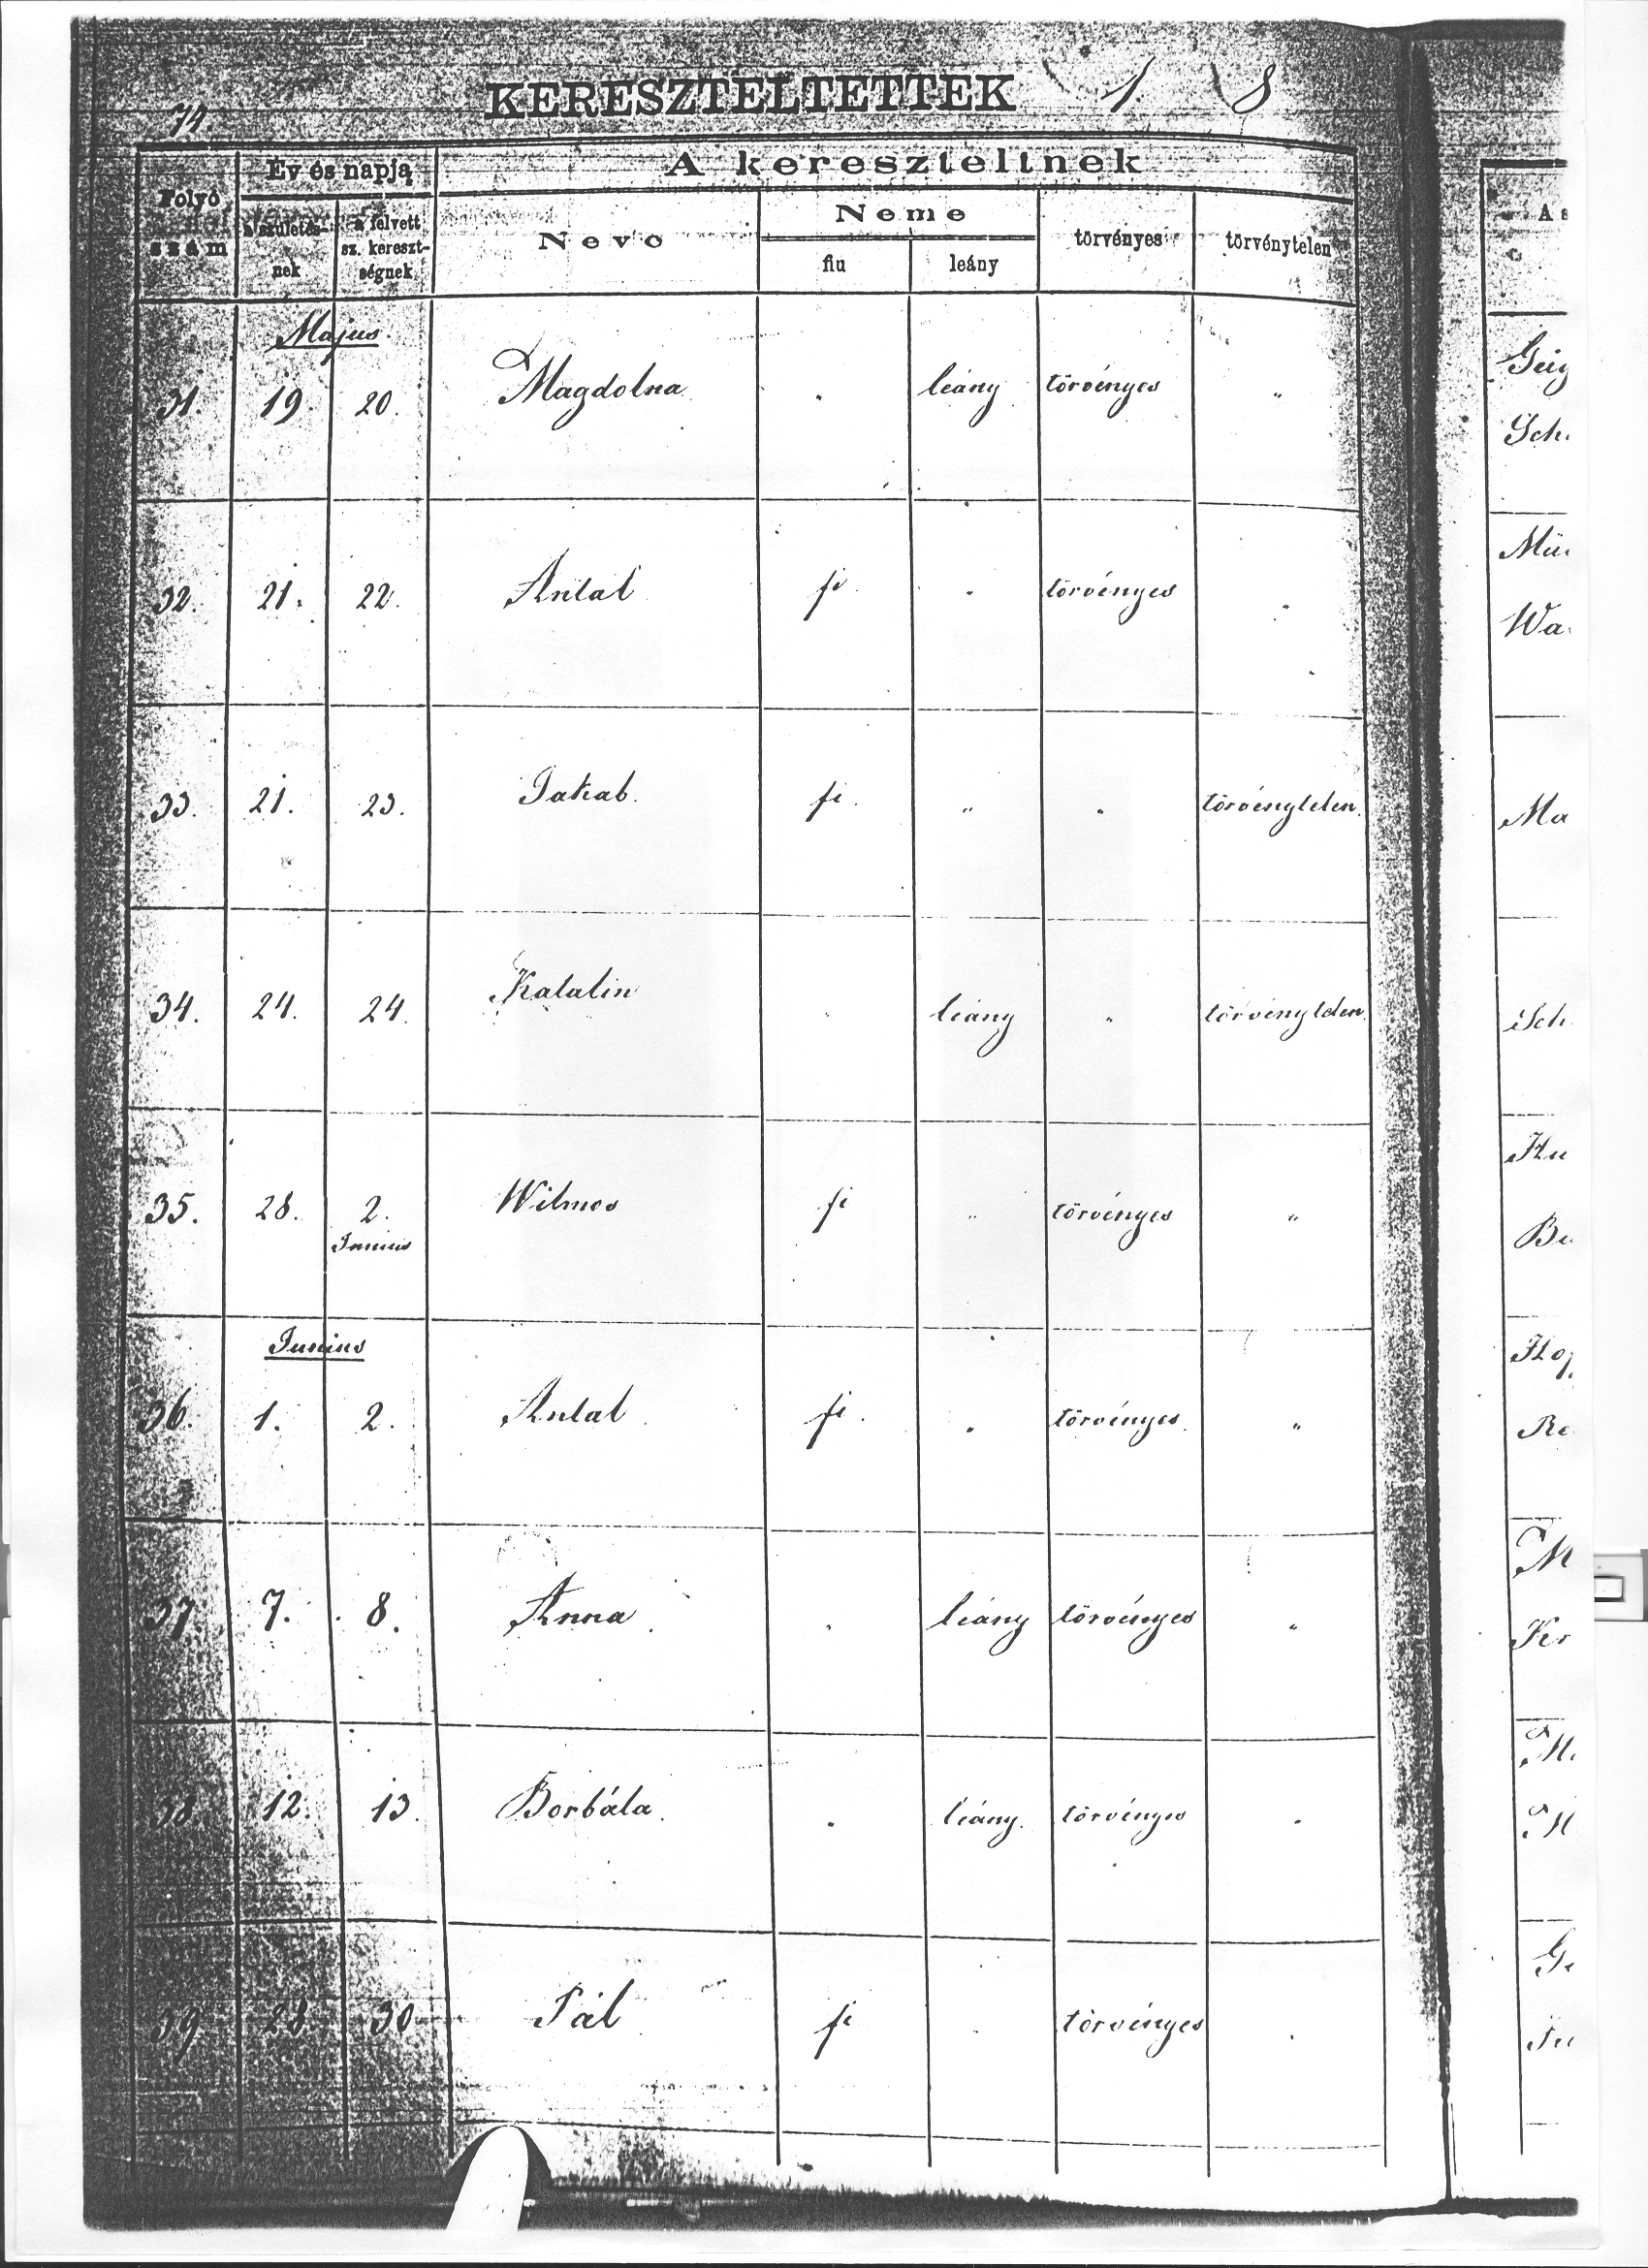 74.
KERESZTELTETTEK 1 8
Folyó szám
Év és napja
a születés-nek
a felvett sz. kereszt-ségnek
A kereszteltnek
Neve
Neme
fiu
leány
törvényes
törvénytelen
Május
31. 19. 20. Magdolna " leány törvényes "
32. 21. 22. Antal fi " törvényes "
33. 21. 23. Jakab. fi. " " törvénytelen.
34. 24. 24. Katalin " leány " törvénytelen.
35. 28. 2. Junius Wilmos fi " törvényes "
Junius
36. 1. 2. Antal fi. " törvényes. "
37. 7. 8. Anna. " leány törvényes "
38. 12. 13. Borbála. " leány. törvényes "
39 28. 30 Pál fi " törvényes "
A s
Geig
Sch
Mü
Wa
Ma
Sch
Hu
Bu
Hop
Re
M
Kr
M
M
Ge